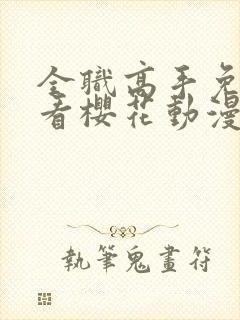 全職高手免
看櫻花動漫
執筆鬼畫符